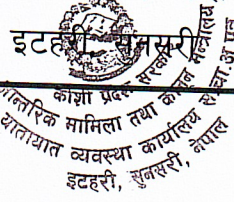 इटहरी, सुनसरी
कोशी प्रदेश सरकार
आन्तरिक मामिला तथा कानून मन्त्रालय
यातायात व्यवस्था कार्यालय
इटहरी, सुनसरी, नेपाल